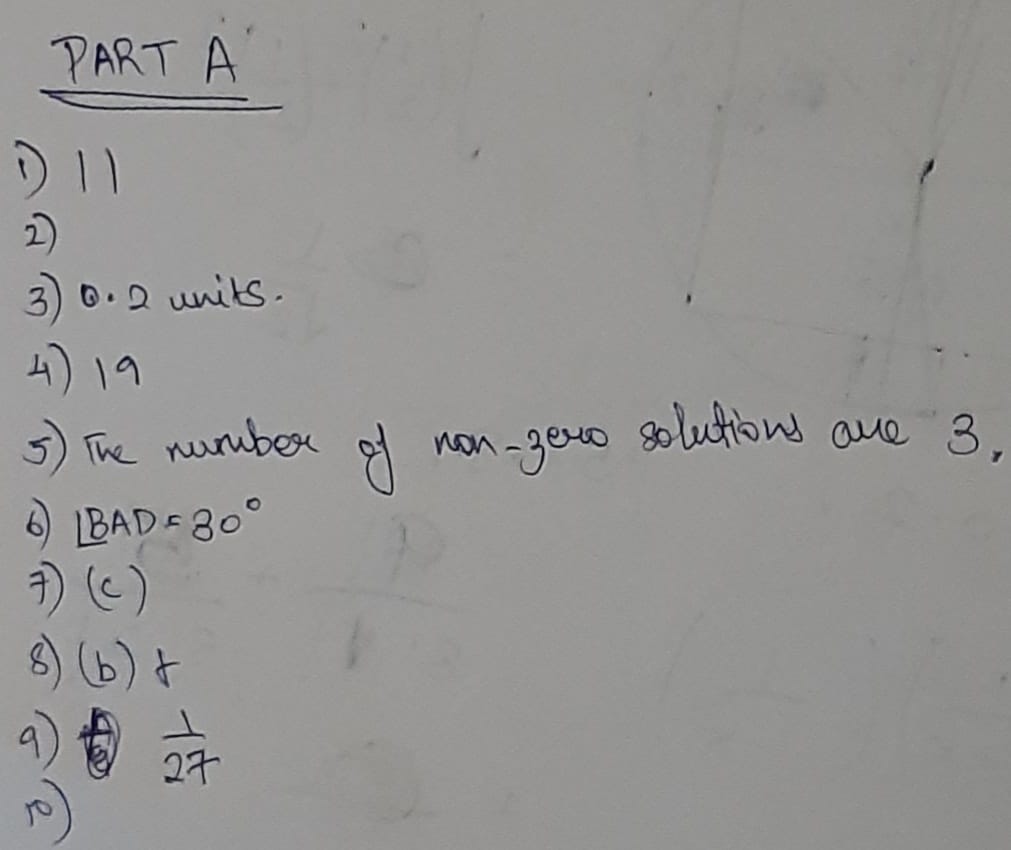 PART A
1) 11
2)
3) 0.2 units.
4) 19
5) The number of non-zero solutions are 3.
6) ∠BAD = 30°
7) (c)
8) (b) t
9) 1/27
10)